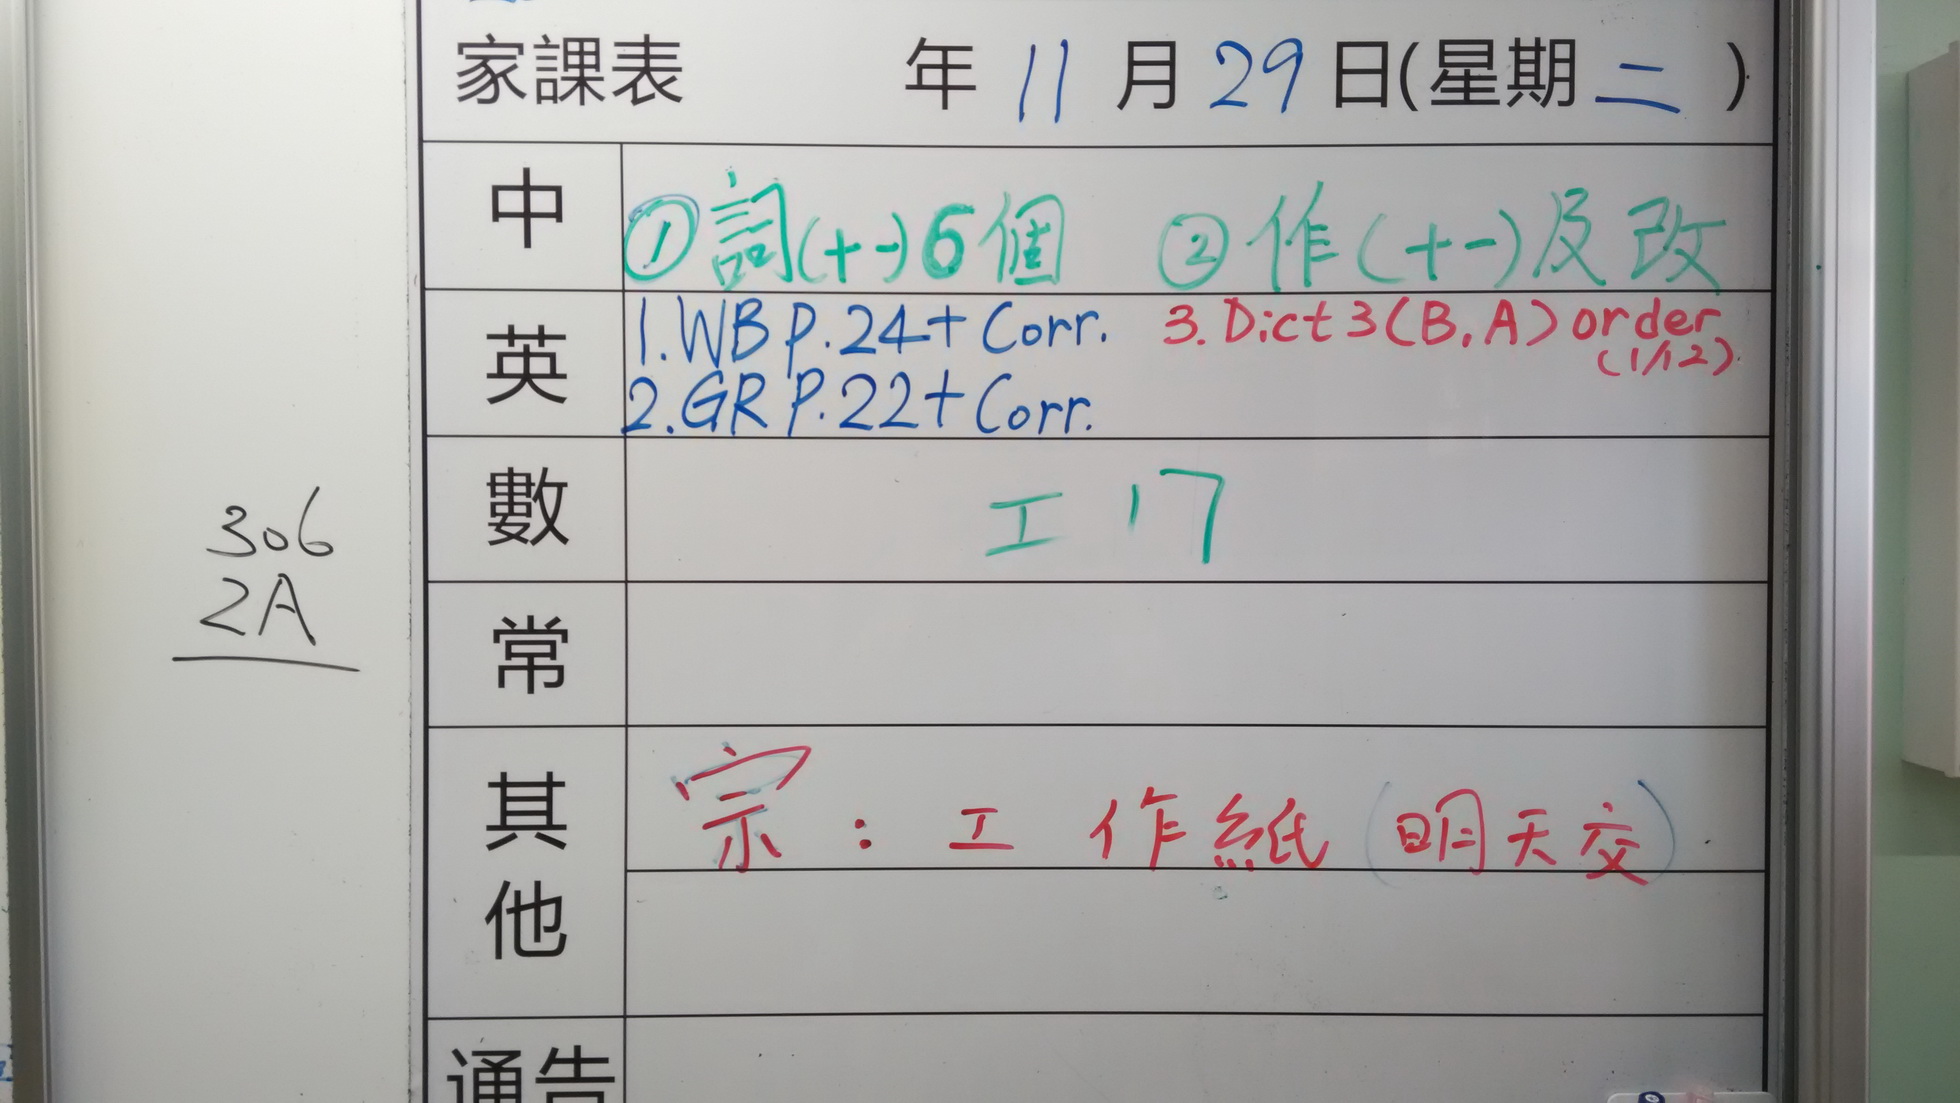 家課表 年 11 月 29 日(星期 二 )
中 ①詞(十一)6個 ②作(十一)及改
英 1.WB p.24+Corr. 3.Dict 3(B,A) order (1/12)
2.GR P.22+Corr.
數 工17
306
2A
常
其他 宗：工作紙(明天交)
通告